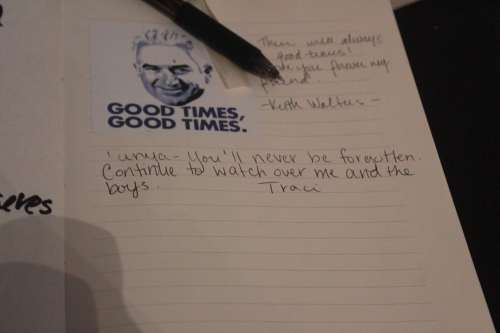 GOOD TIMES,
GOOD TIMES.
There will always
good times!
you forever my
friend.
-Keith Walters-
Tanya - You'll never be forgotten.
Continue to watch over me and the
boys. Traci